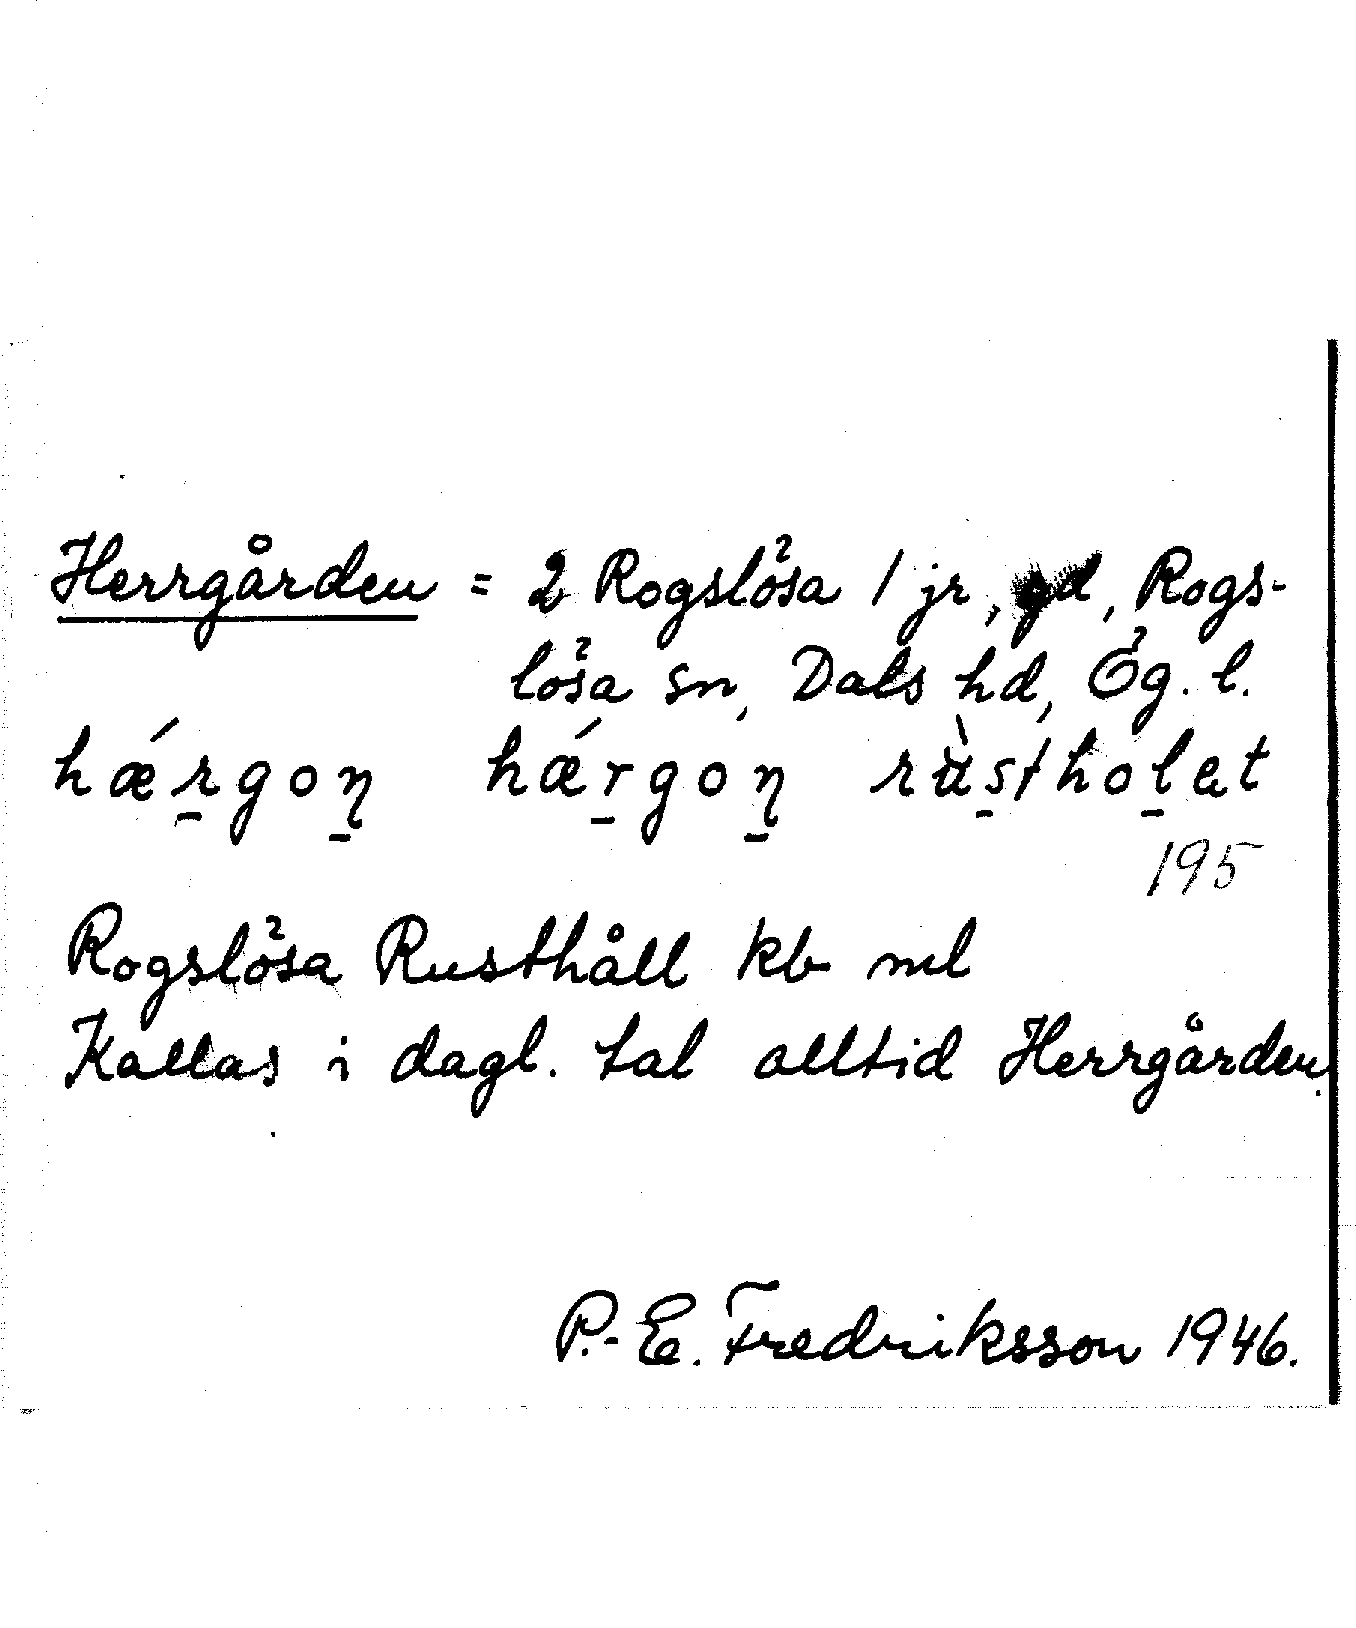 Herrgården = 2 Rogslösa 1 jr, gd, Rogs-
lösa sn, Dals hd, Ög. l.
hǽr̠goη̠ hǽr̠goη̠ rùs̠thol̠et
195
Rogslösa Rusthåll kb ml
Kallas i dagl. tal alltid Herrgården.
P.-E. Fredriksson 1946.